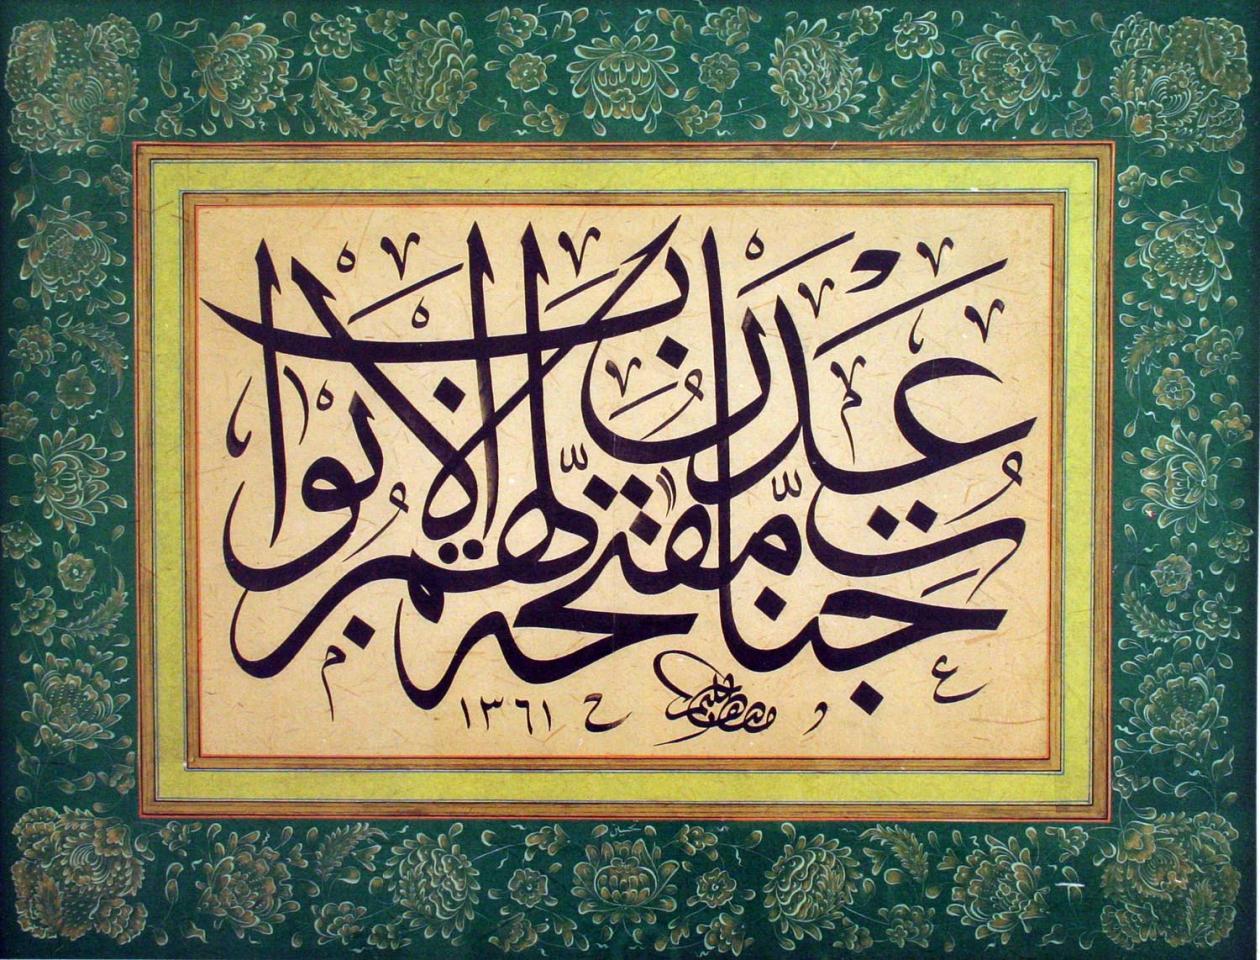 جَنَّاتِ عَدْنٍ مُفَتَّحَةً لَهُمُ الْاَبْوَابُ
١٣٦١